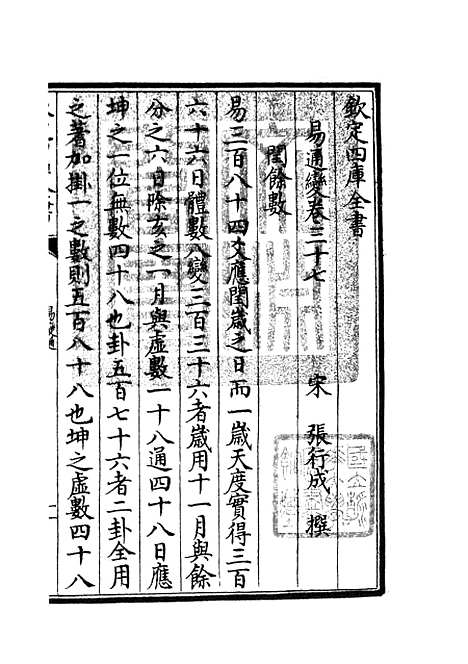 欽定四庫全書
易通變卷三十七
宋 張行成 撰
閏餘數
易三百八十四爻應閏歲之日而一歲天度實得三百
六十六日體數八變三百三十六者歲用十一月與餘
分之六日除亥之一月與虛數一十八通四十八日應
坤之一位無數四十八也卦五百七十六者二卦全用
之蓍加掛一之數則五百八十八也坤之虛數四十八
易通變